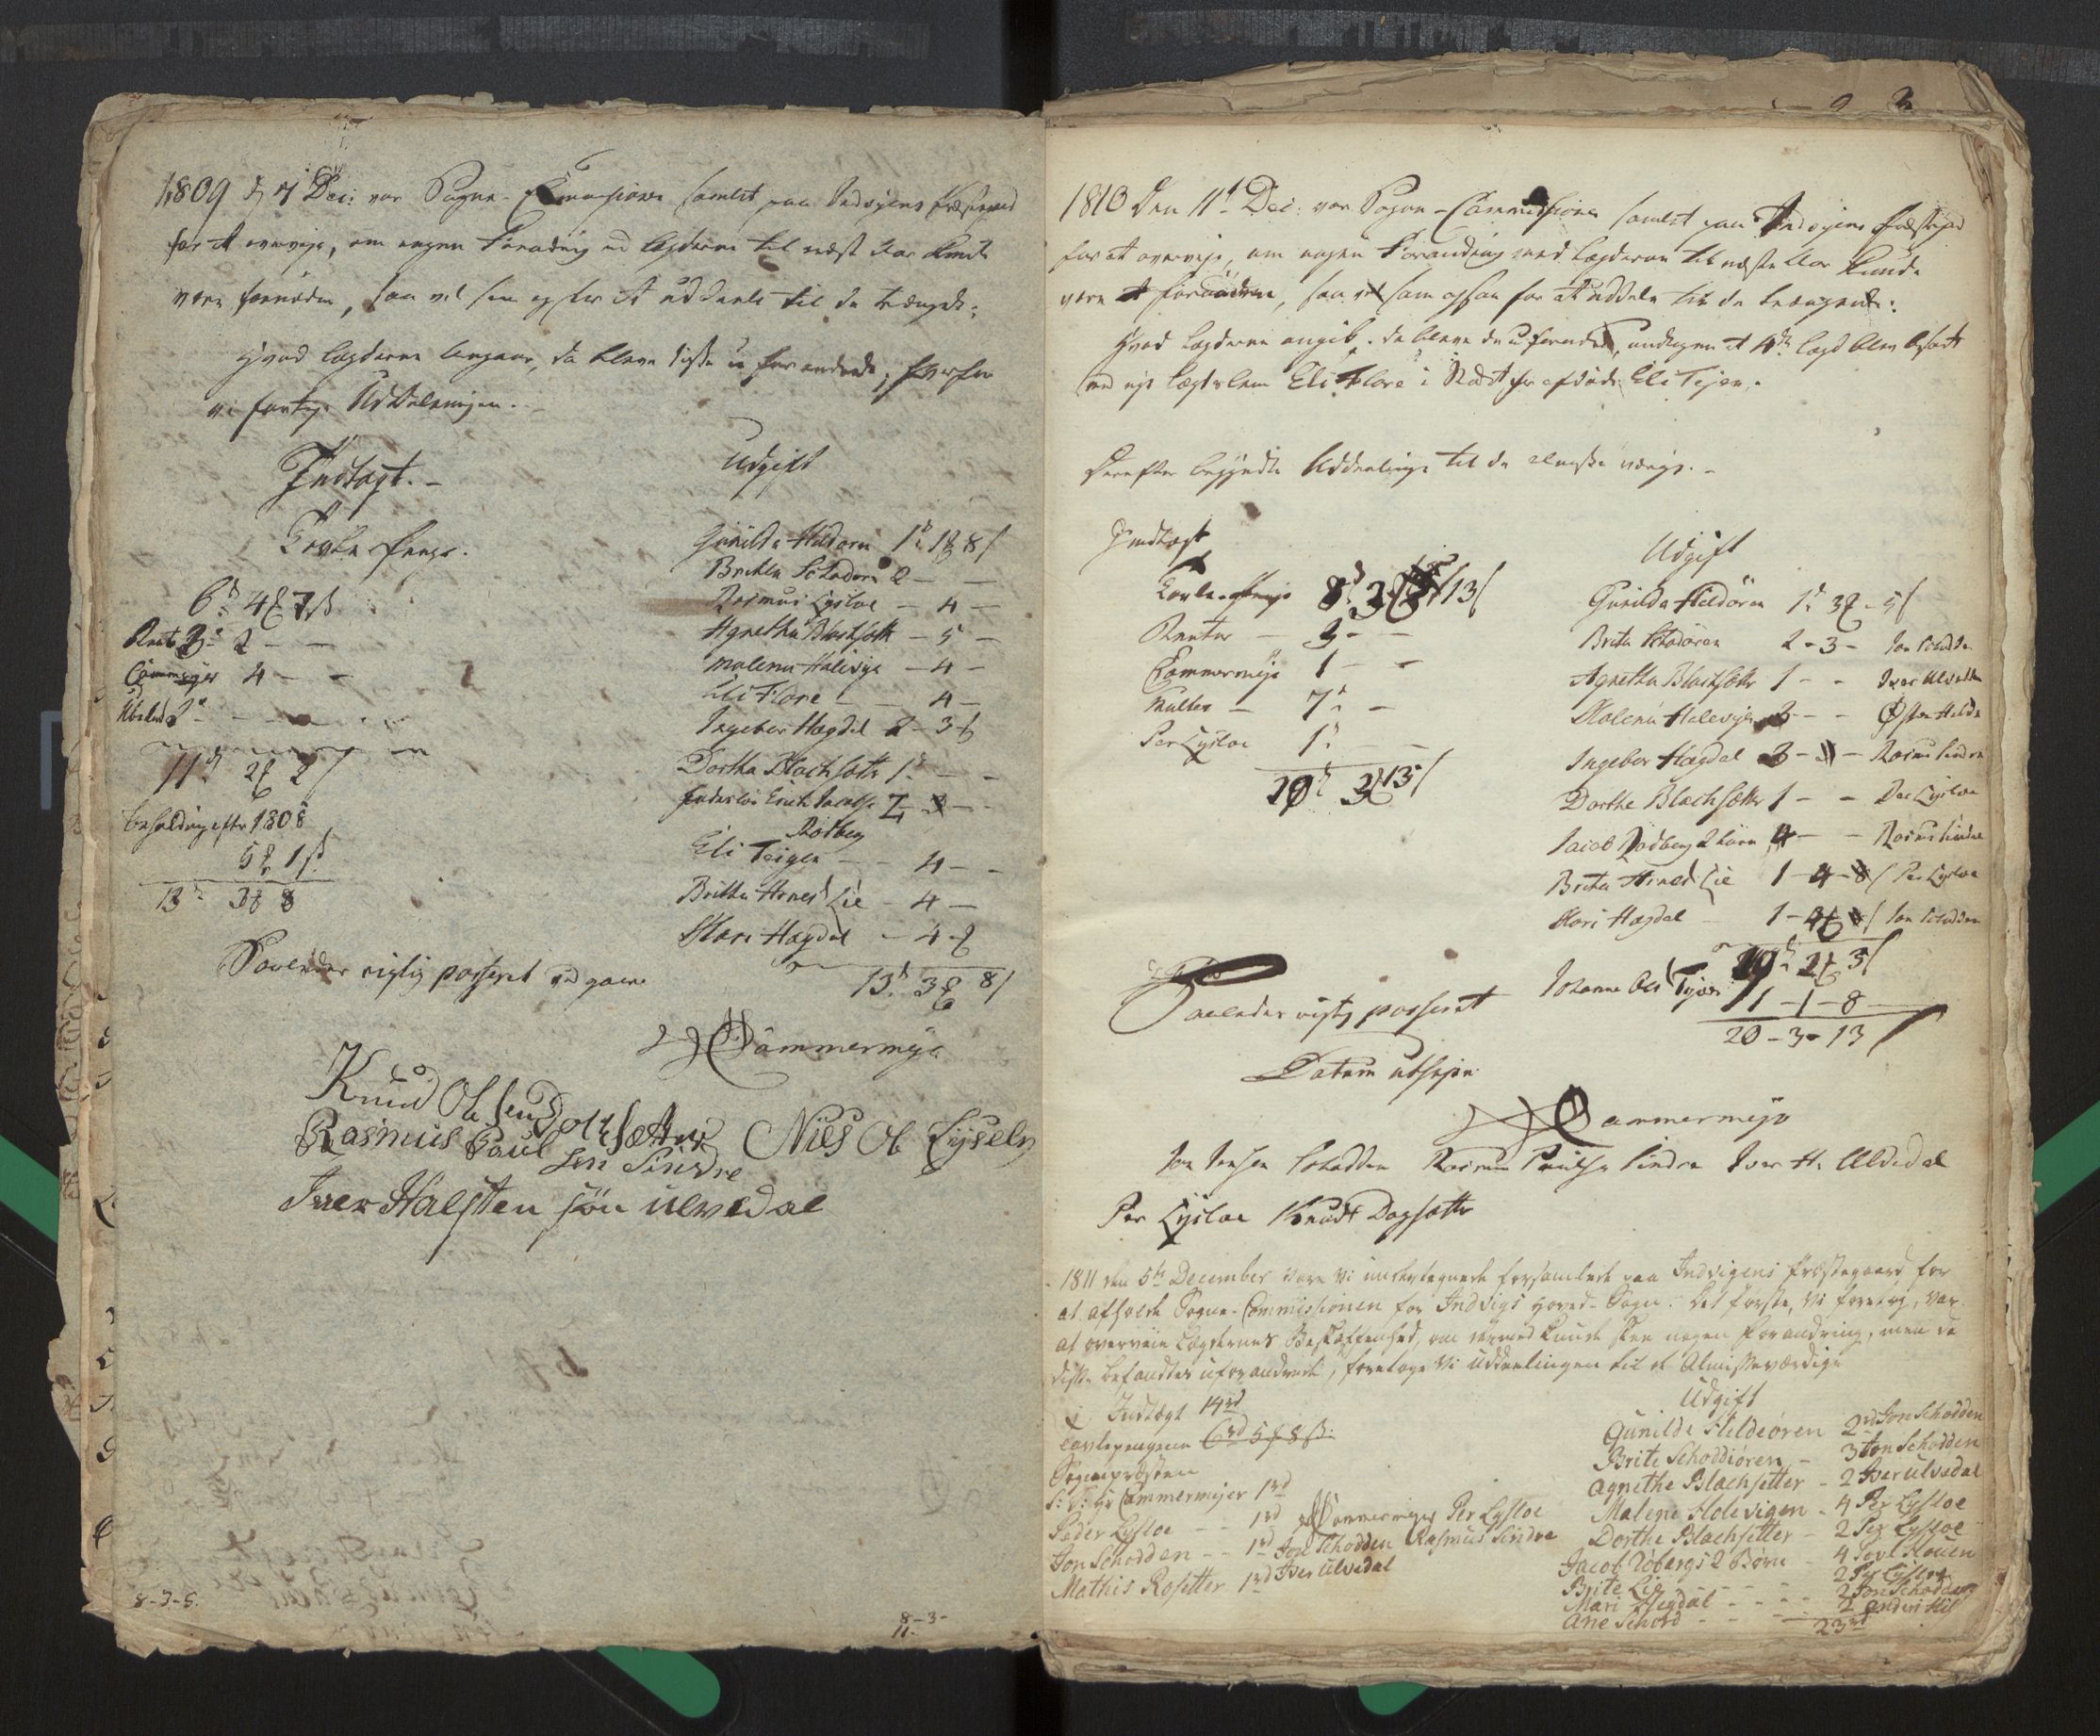 1809 d 7 Dec: var Sogne-Commissionen samlet paa Indvigens Præstegaard
for at overveje, om nogen Forandring med Lægderne til næste Aar kunde
være fornöden, saa vel som og for at uddeele til de trængende.
Hvad Lægderne angaaer, da bleve disse uforandrede, hvorfor
vi foretoge Uddelningen.
Indtægt.
Tavle Penge.
6 d 4 7 ß
Rente 2
Cammejer 4 - -
11 d 2 2 ß
beholdning efter 1808
5 1 ß
13 3 8
Udgift
Gunilda Hildøren 1 d 1 8 ß
Britha Schodøren 2 - -
Rasmus Lysloe - 4 -
Agnetha Blachsætt - 5 -
Malena Holevigen - 4 -
Eli Flore - 4 -
Ingebor Hægdal 2 - 3
Dortha Blachsætt 1 - -
Rödberg
Eli Teigen - - 4 -
Britha Arnes Lie - 4 -
Mari Hægdal - 4
13 d 3 8 ß
Saaledes rigtig passeret
Cammermeyer
Knud Olsen Dogsætter
Rasmus Paulsen Sindre
Niels Ols Lyseloe
Iver Halsten sön Ulvedal
8-3-5.
8-3-
11-
1810 Den 11 Dec: var Sogne-Commissionen samlet paa Indvigens Præstegaard
for at overveje, om nogen Forandring med Lægderne til næste Aar kunde
være fornöden, saa vel som ogsaa for at uddele til de trængende.
Hvad Lægderne angik, da bleve de uforandret, undtagen at 4de Lægd blev besatt
med nye Lægdslem Eli Flore i Stædet for afdøde Eli Tejen.
Derefter begyndte Uddelingen til de
Indtægt
Tavle-Penge 8 d 3 13 ß
Renter - 3 - -
Cammermeyer 1 - -
Mulkter - 7 d -
Per Lysloe 1 d - -
20 d 3 13 ß
Udgift
Gunilda Hildören 1 d 3 - 5 ß
Britha Schodören 2 - 3 - Jon Schodden
Agnetha Blachsætt 1 - - Iver Ulvedal
Malena Holevigen 3 - - Østen
Ingebor Hægdal 3 - - Rasmus Sindre
Dorthe Blachsætt 1 - - Per Lysloe
Jacob Rödbergs 2 Börn 4 - - Rasmus Sindre
Brita Arnes Lie 1 - 4 - 8 ß Per Lysloe
Mari Hægdal - 1 - 4 ß Jon Schodden
19 d 2 5 ß
Johanne Ols Tejen 1 - 1 - 8
20 - 3 - 13 ß
Saaledes rigtig passeret
Datum utsupra
Cammermeyer
Jon Jensen Schodden Rasmus Paulsen Sindre Iver H. Ulvedal
Per Lysloe Knudt Dogsætter
1811 den 5te December vare vi undertegnede forsamlede paa Indvigens Præstegaard for
at afholde Sogne-Commissionen for Indvigs Hoved-Sogn. Det første, vi foretog, var
at overveie Lægdernes Beskaffenhed, om dermed kunde skee nogen Forandring, men da
disse befandtes uforandrede, foretoge vi Uddeelingen til de Almisseværdige
Indtægt 14 rd
Tavlepengene 6 rd 5 8 ß.
Sognepræsten
S: T: Hr Cammermejer 1 rd
Peder Lysloe - - 1 rd
Jon Schodden - - 1 rd
Mathis Rosetter 1 rd
Cammermeyer Per Lysloe
Jon Schodden Rasmus Sindre
Iver Ulvedal
Udgift
Gunilde Hildeören 2 rd Jon Schodden
Brite Schoddiören - 3 Jon Schodden
Agnethe Blachsetter - 2 Iver Ulvedal
Malene Holevigen - 4 Per Lysloe
Dorthe Blachsetter - 2 Per Lysloe
Jacob Röbergs 2 Börn - 4
Brite Lie - - - 2 Per Lysloe
Mari Hegdal - - - - 2 Jon Schodden
Ane Schord - - - 2
23 rd